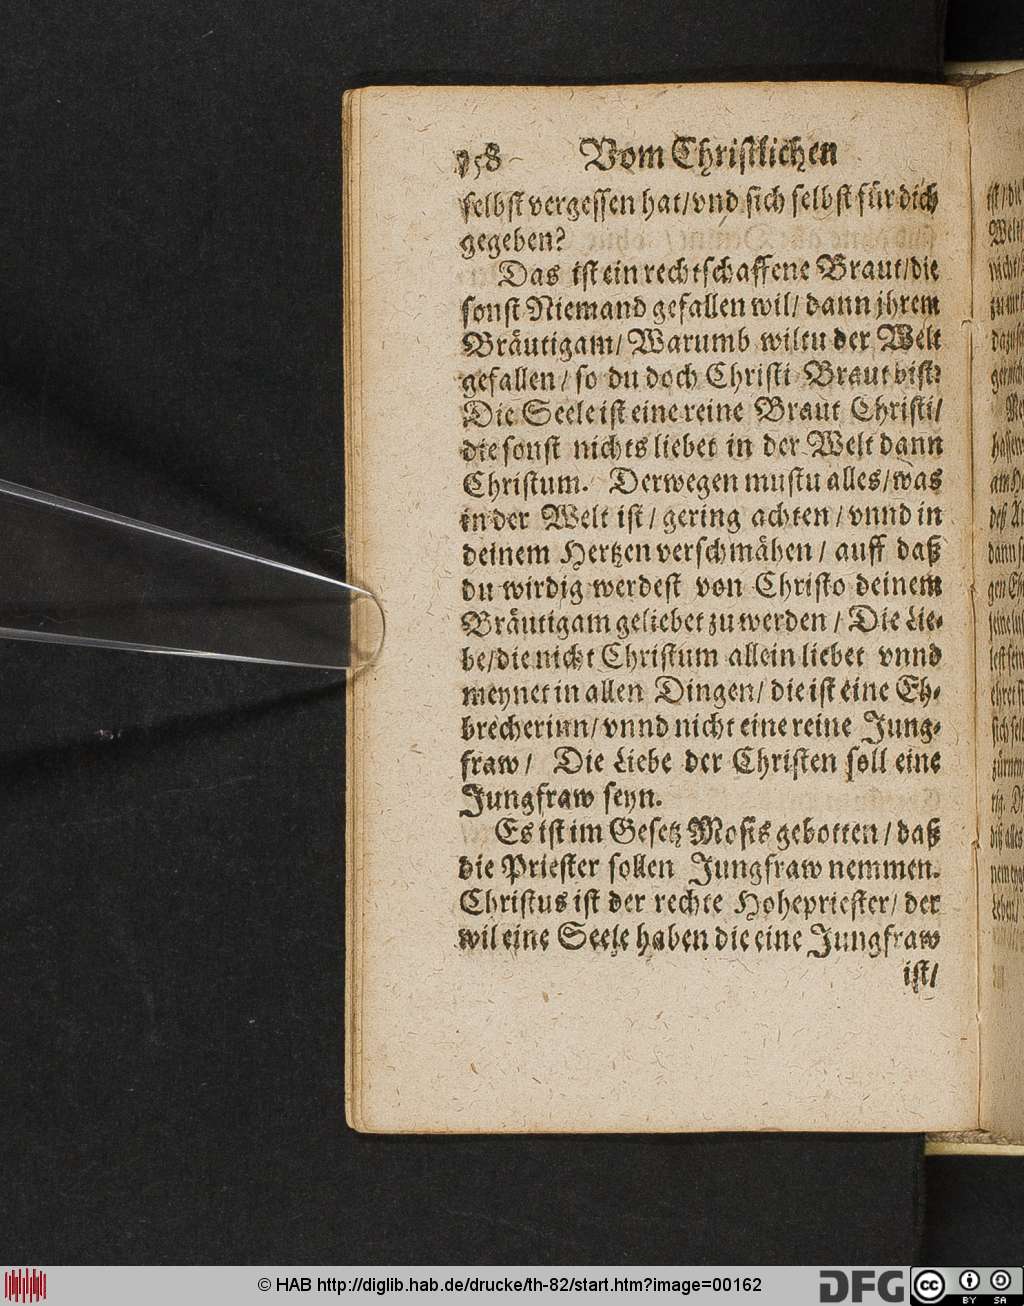 158 Vom Christlichen
selbst vergessen hat/vnd sich selbst für dich
gegeben?
Das ist ein rechtschaffene Braut/die
sonst Niemand gefallen wil/ dann jhrem
Bräutigam/ Warumb wiltu der Welt
gefallen/ so du doch Christi Braut bist?
Die Seele ist eine reine Braut Christi/
die sonst nichts liebet in der Welt dann
Christum. Derwegen mustu alles/was
in der Welt ist/ gering achten/ vnnd in
deinem Hertzen verschmähen/ auff daß
du wirdig werdest von Christo deinem
Bräutigam geliebet zu werden/ Die Lie⸗
be/die nicht Christum allein liebet vnnd
meynet in allen Dingen/ die ist eine Eh⸗
brecherinn/ vnnd nicht eine reine Jung⸗
fraw/ Die Liebe der Christen soll eine
Jungfraw seyn.
Es ist im Gesetz Mosis gebotten/ daß
die Priester sollen Jungfraw nemmen.
Christus ist der rechte Hohepriester/ der
wil eine Seele haben die eine Jungfraw
ist/
© HAB http://diglib.hab.de/drucke/th-82/start.htm?image=00162
DFG
cc
BY SA